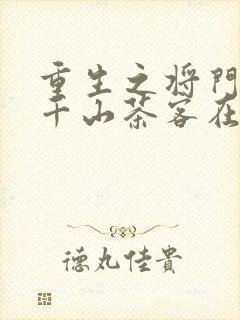 重生之将門
千山茶客在
德丸佳貴